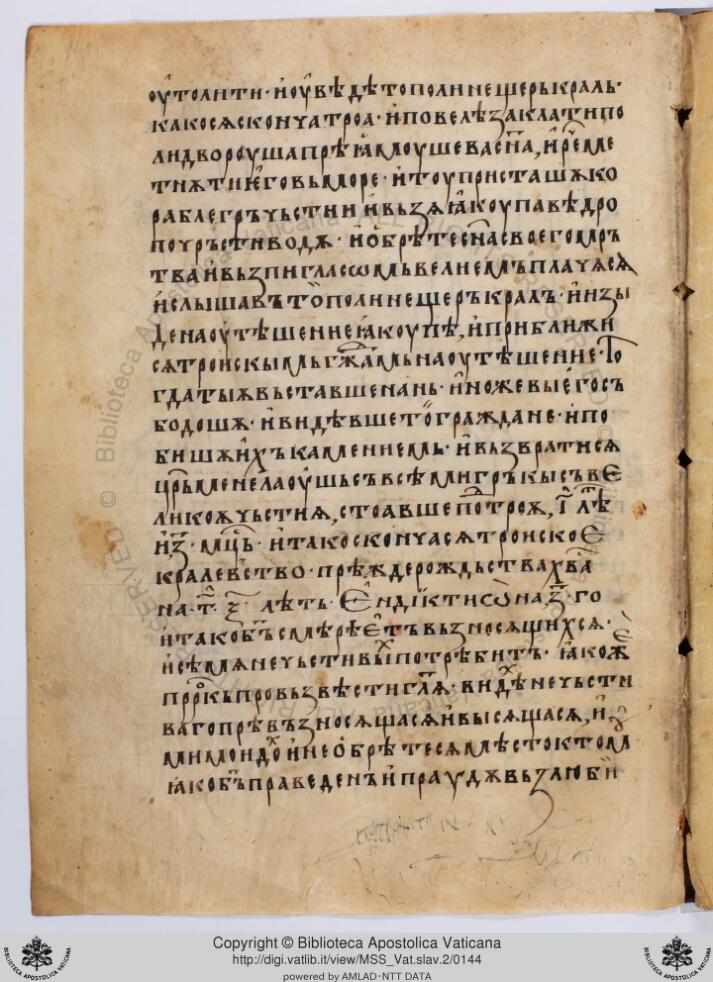 оутолити · и оувѣдѣ тополинещерь краль ·
како сѧ сконча троа · и повелѣ заклати по
лидвороуша прѣꙗмоушева сн҃а, и рєⷱ҇ ме
тнѫти и҆ его вь море · и тоу присташѫ ко
рабле грьчьстии и вьзѧ ꙗкоупа вѣдро
почрѣсти водѫ · и обрѣте сн҃а своего мръ
тва и вьзпи гласѡмь велиемъ плачѧсѧ
и слышавъ тополинещеръ кралъ · и изы
де на оутѣшение ꙗкоупѣ, и приближи
сѧ троискымь гжⷭ҇амь на оутѣшение · То
гда тыѧ вьставше на нь · и ножевы его съ
бодошѫ · и видѣвше то граждане · и по
бишѫ ихъ камениемь · и вьзврати сѧ
цр҃ь менелаоушь съ всѣми гръкы съ вє
ликоѫ чьстиѫ, стоавше по троѫ, і҃ лѣⷮ
и з҃ · мцⷭ҇ь · и тако сконча сѧ троиское
кралевъство · прѣжде рождьства хв҃а
на · т҃ · ѯ҃ · лѣть · Єндиктиѡна, з҃ · го
и тако бъ҃ смѣрѣетъ вьзносѧщихсѧ ·
и сѣмѧ нечьстивыⷯ потрѣбитъ · ꙗкоже
прⷪ҇ркъ провьзвѣсти гл҃ѧ · видѣⷯ нечьсти
ваго прѣвъзносѧща сѧ и высѧща сѧ, и
мимоидоⷯ и не обрѣте сѧ мѣсто к томⷹ
ꙗко бъ҃ праведенъ и правдѫ вьзлюби
Copyright © Biblioteca Apostolica Vaticana
http://digi.vatlib.it/view/MSS_Vat.slav.2/0144
powered by AMLAD · NTT DATA